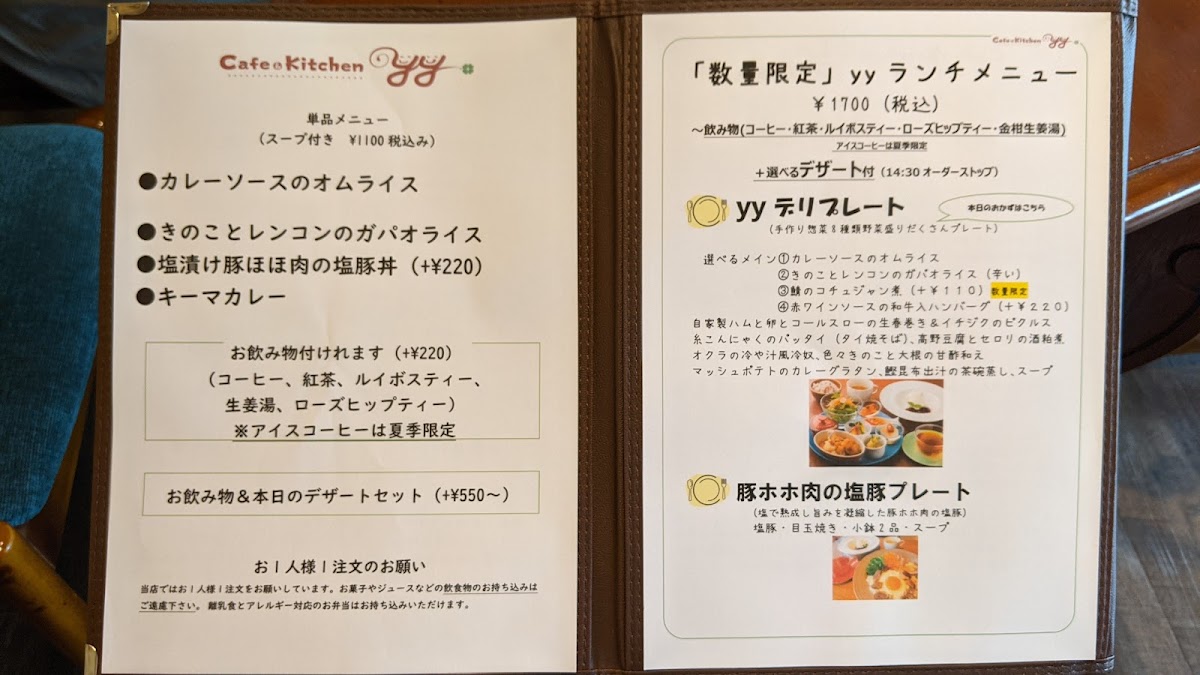 Cafe & Kitchen yy
単品メニュー
(スープ付き ¥1100税込み)
●カレーソースのオムライス
●きのことレンコンのガパオライス
●塩漬け豚ほほ肉の塩豚丼 (+¥220)
●キーマカレー
お飲み物付けれます (+¥220)
(コーヒー、紅茶、ルイボスティー、
生姜湯、ローズヒップティー)
※アイスコーヒーは夏季限定
お飲み物&本日のデザートセット (+¥550~)
お1人様1注文のお願い
当店ではお1人様1注文をお願いしています。お菓子やジュースなどの飲食物のお持ち込みは
ご遠慮下さい。離乳食とアレルギー対応のお弁当はお持ち込みいただけます。
Cafe & Kitchen yy
「数量限定」yyランチメニュー
¥1700 (税込)
~飲み物(コーヒー・紅茶・ルイボスティー・ローズヒップティー・金柑生姜湯)
アイスコーヒーは夏季限定
+選べるデザート付 (14:30オーダーストップ)
yyデリプレート
本日のおかずはこちら
(手作り惣菜8種類野菜盛りだくさんプレート)
選べるメイン①カレーソースのオムライス
②きのことレンコンのガパオライス (辛い)
③鯖のコチュジャン煮 (+¥110) 数量限定
④赤ワインソースの和牛入ハンバーグ (+¥220)
自家製ハムと卵とコールスローの生春巻き&イチジクのピクルス
糸こんにゃくのパッタイ (タイ焼そば)、高野豆腐とセロリの酒粕煮
オクラの冷や汁風冷奴、色々きのこと大根の甘酢和え
マッシュポテトのカレーグラタン、鰹昆布出汁の茶碗蒸し、スープ
豚ホホ肉の塩豚プレート
(塩で熟成し旨みを凝縮した豚ホホ肉の塩豚)
塩豚・目玉焼き・小鉢2品・スープ